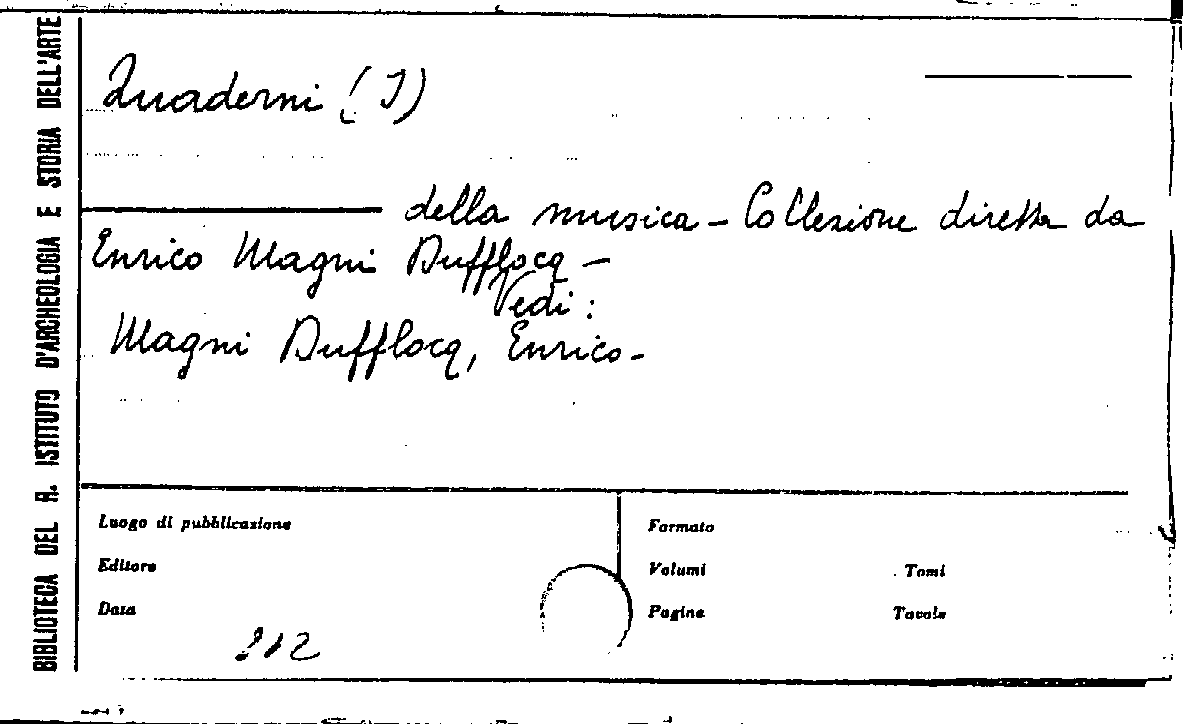 BIBLIOTECA DEL R. ISTITUTO D'ARCHEOLOGIA E STORIA DELL'ARTE
Quaderni (I)
della musica - Collezione diretta da
Enrico Magni Dufflocq -
Vedi :
Magni Dufflocq, Enrico -
Luogo di pubblicazione
Editore
Data
Formato
Volumi Tomi
Pagine Tavole
212